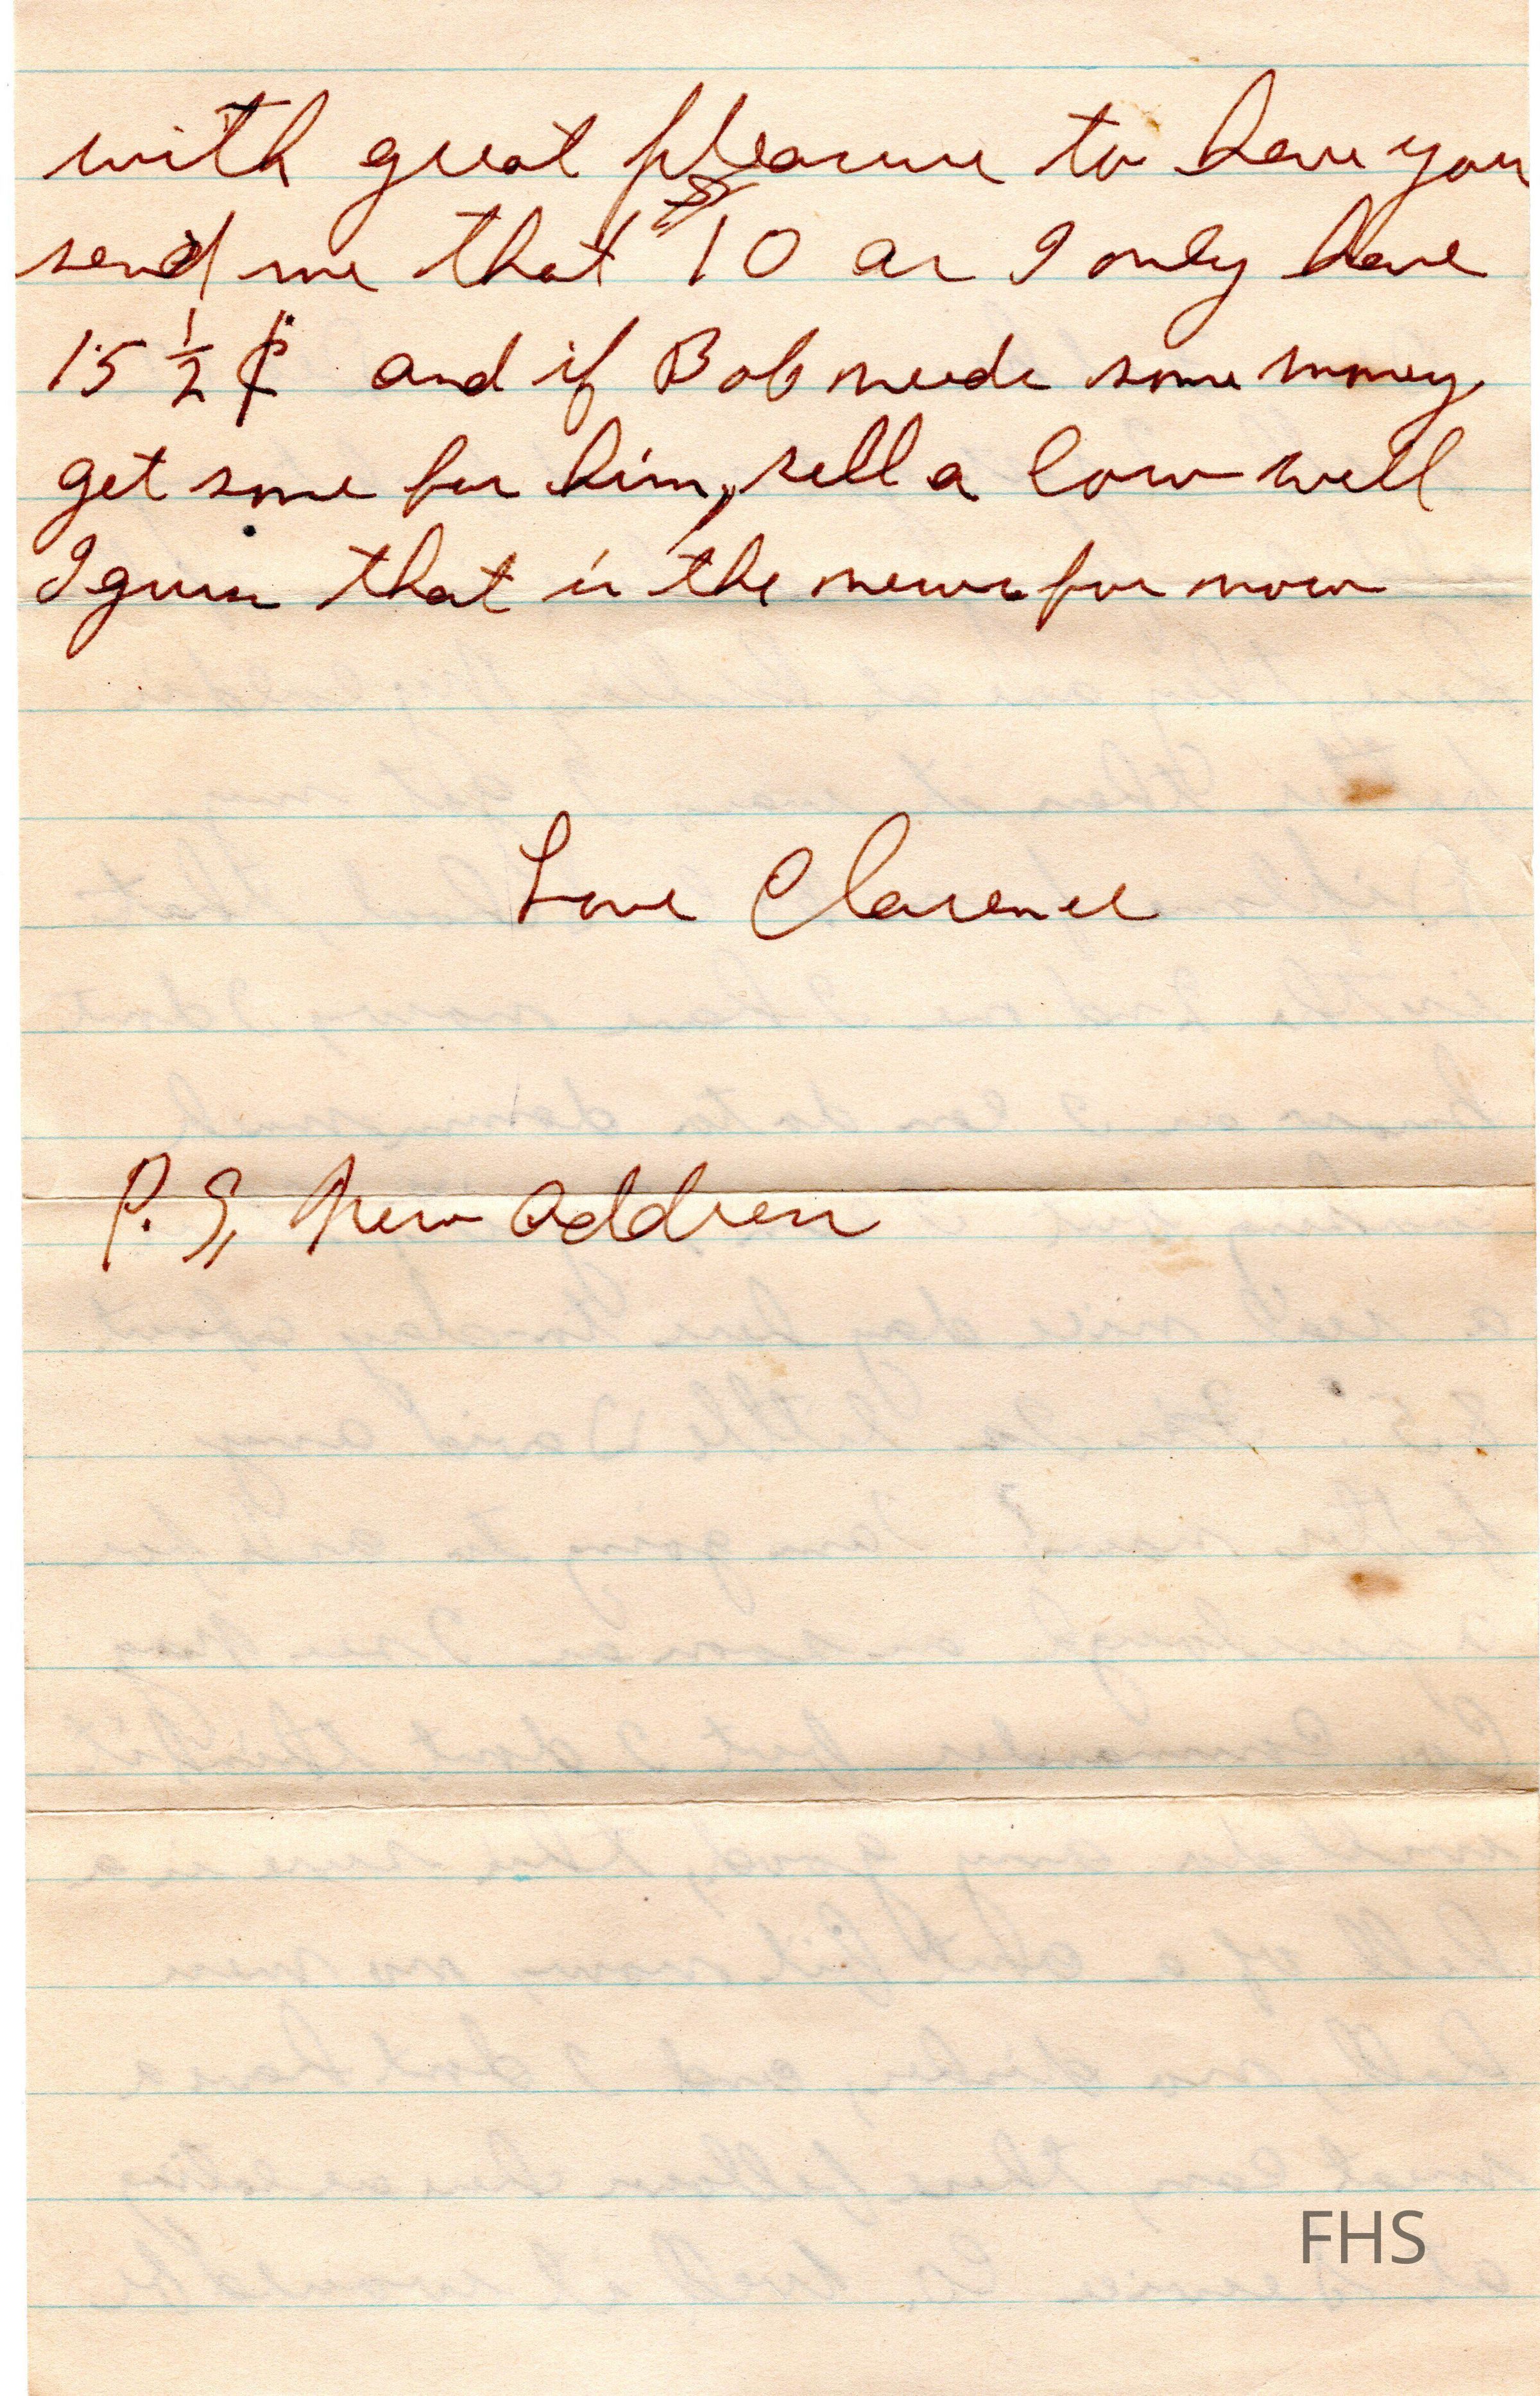 with great pleasure to have you
send me that $10 as I only have
15 1/2 ¢ and if Bob needs some money
get some for him, sell a cow well
I guess that is the news for now
Love Clarence
P.S, New Address
FHS